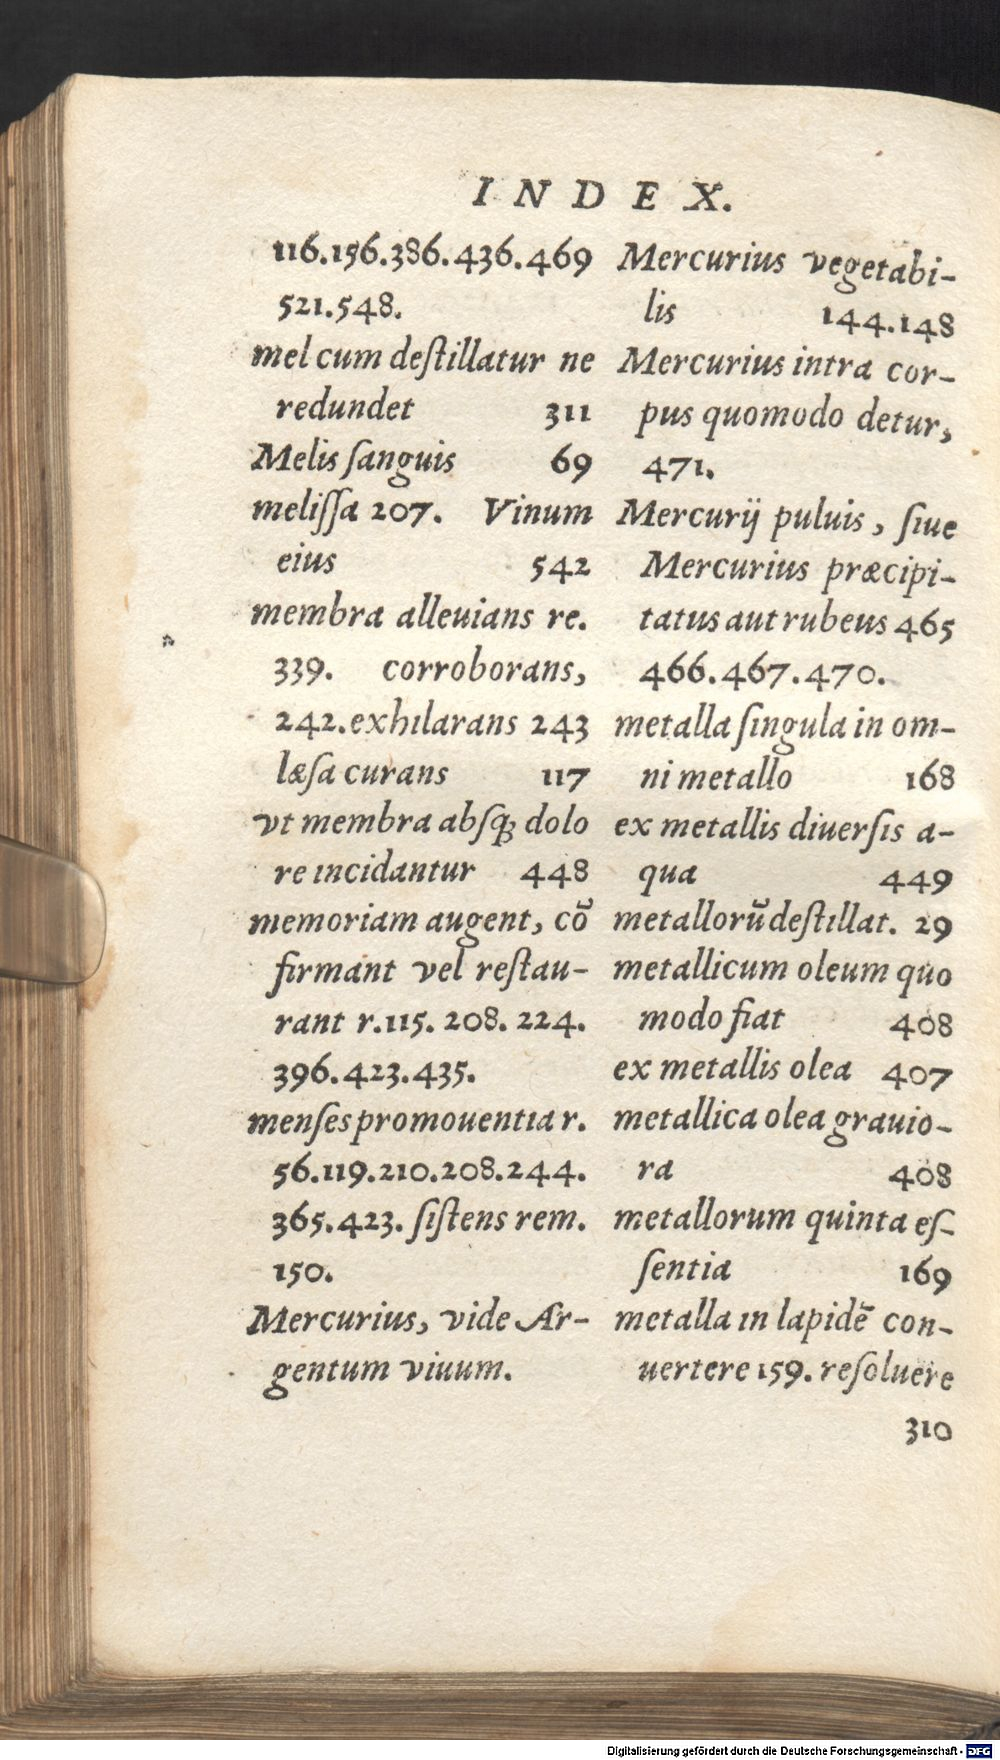 INDEX.
116.156.386.436.469
521.548.
mel cum deſtillatur ne
redundet 311
Melis ſanguis 69
meliſſa 207. Vinum
eius 542
membra alleuians re.
339. corroborans,
242. exhilarans 243
læſa curans 117
vt membra abſq; dolo
re incidantur 448
memoriam augent, cō
firmant vel reſtau-
rant r. 115. 208. 224.
396.423.435.
menſes promouentia r.
56.119.210.208.244.
365.423. ſiſtens rem.
150.
Mercurius, vide Ar-
gentum viuum.
Mercurius vegetabi-
lis 144.148
Mercurius intra cor-
pus quomodo detur,
471.
Mercurij puluis, ſiue
Mercurius præcipi-
tatus aut rubeus 465
466.467.470.
metalla ſingula in om-
ni metallo 168
ex metallis diuerſis a-
qua 449
metallorū deſtillat. 29
metallicum oleum quo
modo fiat 408
ex metallis olea 407
metallica olea grauio-
ra 408
metallorum quinta eſ-
ſentia 169
metalla in lapidē con-
uertere 159. reſoluere
310
Digitalisierung gefördert durch die Deutsche Forschungsgemeinschaft - DFG